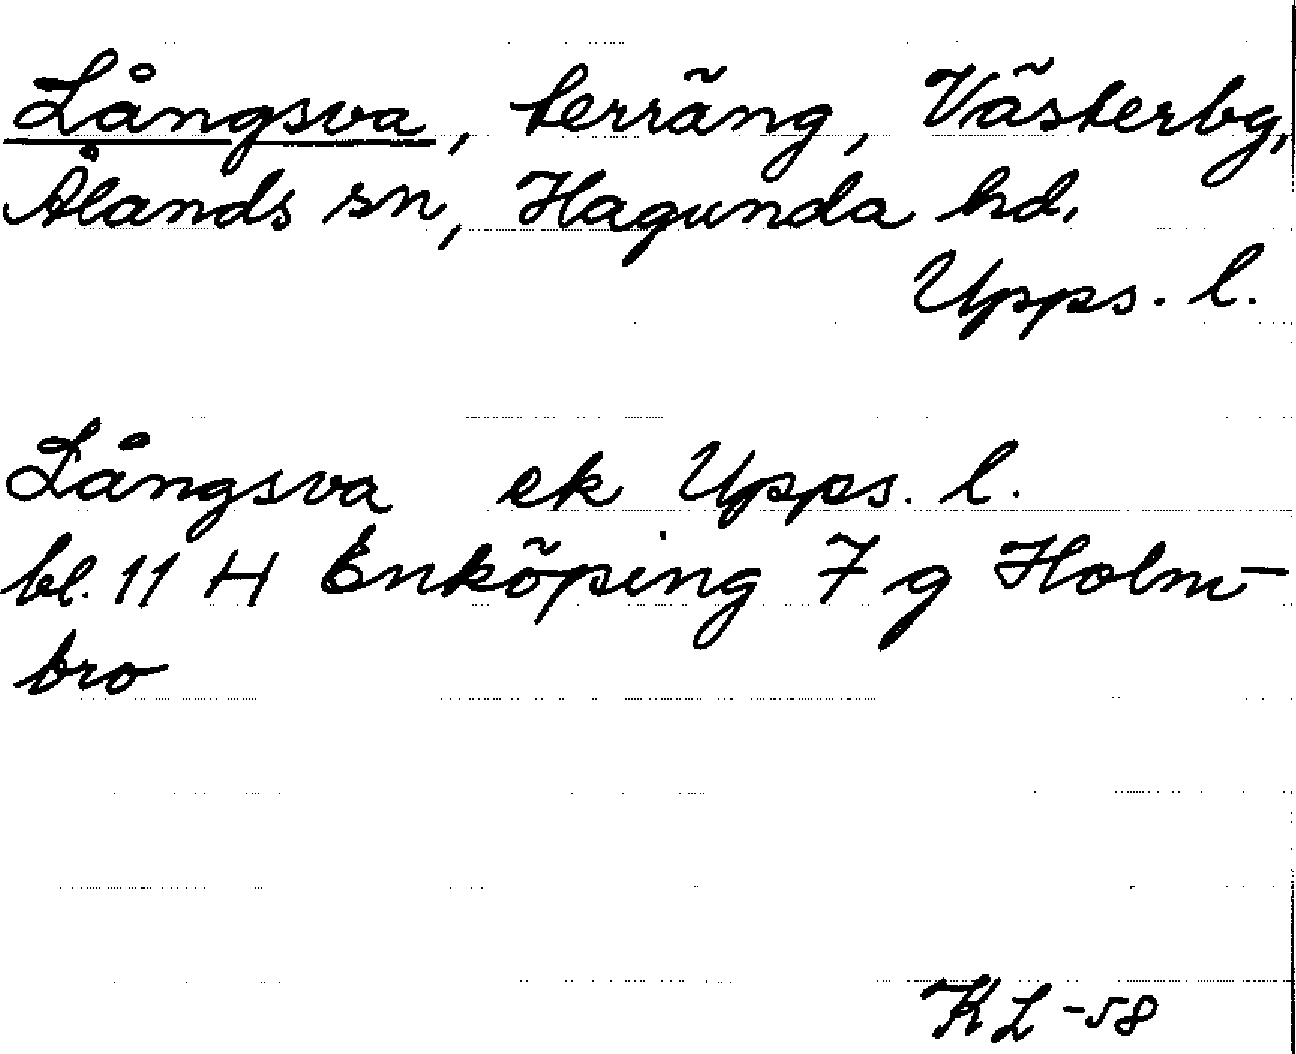 Långsva, terräng, Västerbg,
Ålands sn, Hagunda hd.
Upps. l.
Långsva ek Upps. l.
bl. 11 H Enköping 7 g Holm-
bro
KL -58